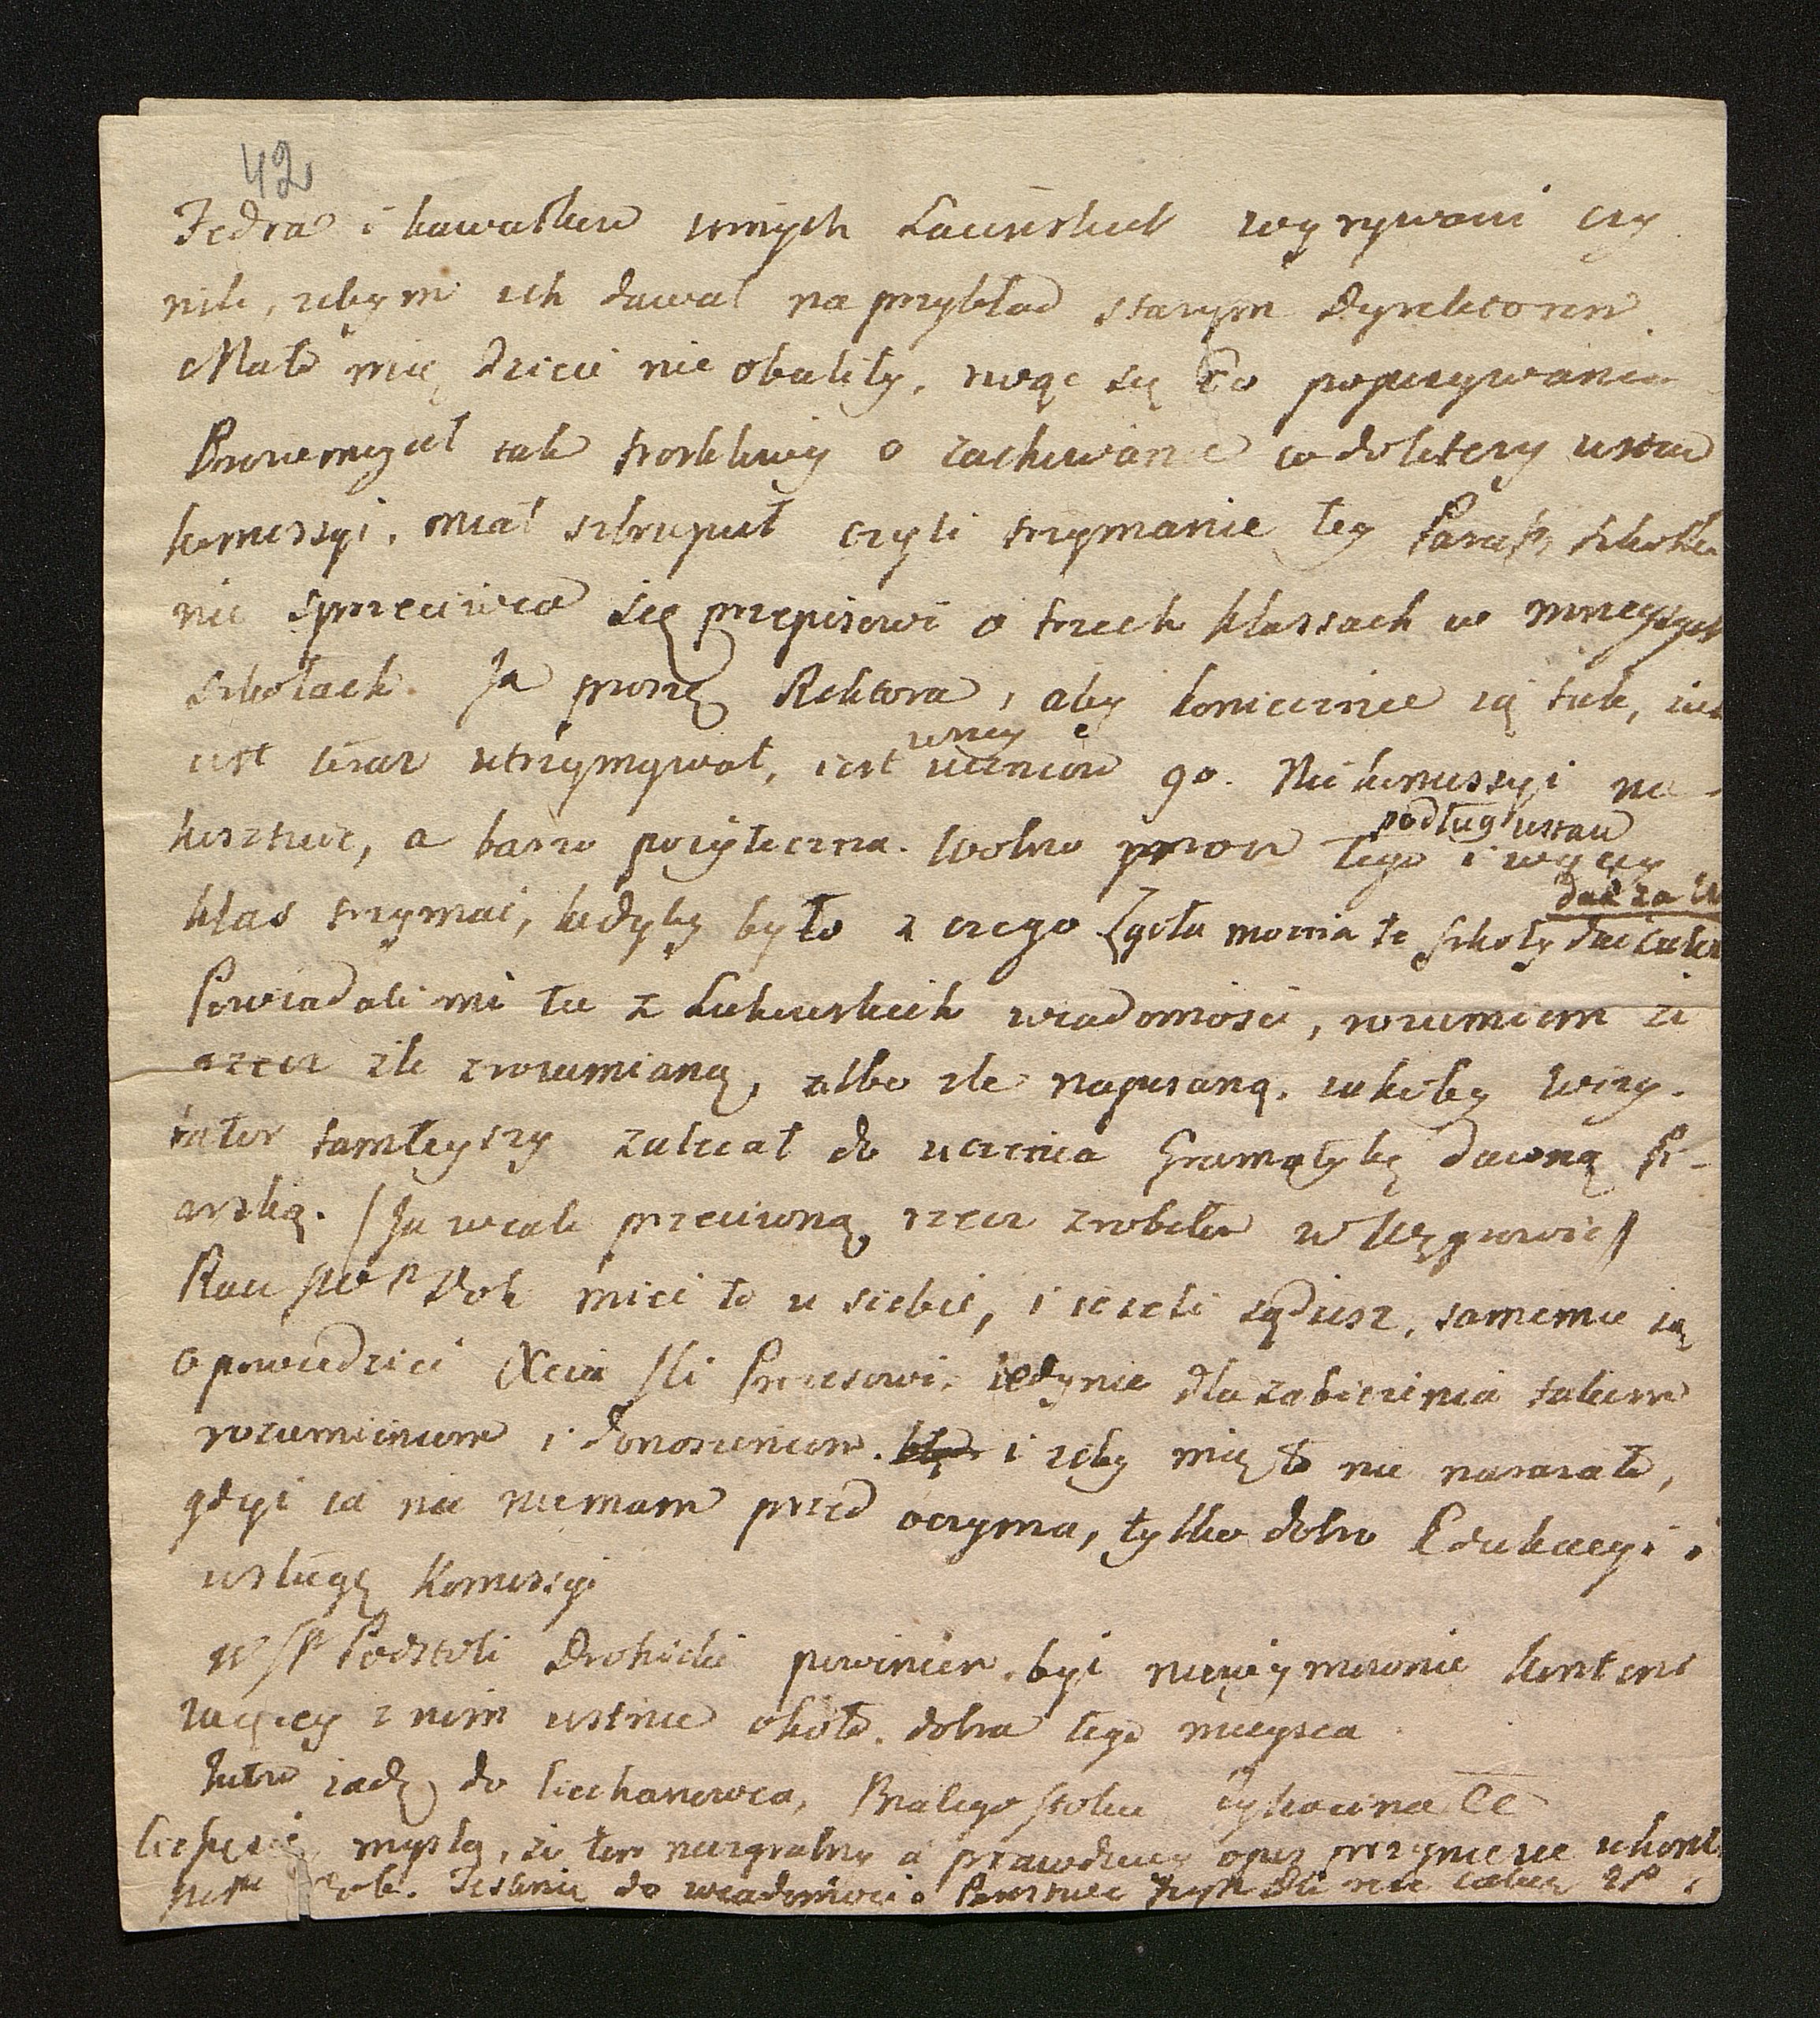 42
Fedra i kawałków innych Łacińskich wyrywani czy
nili, żebym ich dawał na przykład starym Dyrektorom.
Mało mię dzieci nie obaliły, rwąc się do popisywania
tak troskliwy o zachowanie co do litery ustaw
komissyi, miał skrupuł czyli trzymanie tey Paraf. szkołki
nie sprzeciwia się przepisowi o trzech klassach w mnieyszych
szkołach. Ja proszę Rektora, aby koniecznie ią tak, iak
iest teraz utrzymywał, iest w niey uczniów 90. Nic komissyi nie
kosztuie, a barzo pożyteczna. Wolno prócz tego podług ustaw i więcey
klas trzymać, kiedyby było z czego. Zgoła można te szkoły
Powiadali mi tu z Łukowskich wiadomość, rozumiem że
rzecz źle zrozumianą, albo źle napisaną, iakoby Wizy-
tator tamteyszy zalecał do uczenia Gramatykę dawną Pi-
arską. (Ja wcale przeciwną rzecz zrobiłem w Węgrowie)
Racz WP Dob. mieć to u siebie, i ieżeli sądzisz, samemu ią
opowiedzieć Xciu JCi Prezesowi, iedynie dla zabieżenia takim
rozumieniom i donoszeniom. i żeby mię to nie narażało,
gdyż ia nic niemam przed oczyma, tylko dobro Edukacyi i
usługę Komissyi
W JP Podstoli Drohicki powinien być niewymownie kontent
więcey z nim ustnie około dobra tego mieysca
Jutro iadę do Ciechanowca, Białegostoku Tykocina &c
Cieszę się myślą, że ten niezgrabny a prawdziwy opis przyniesie ukont.
Dob. do wiadomości o